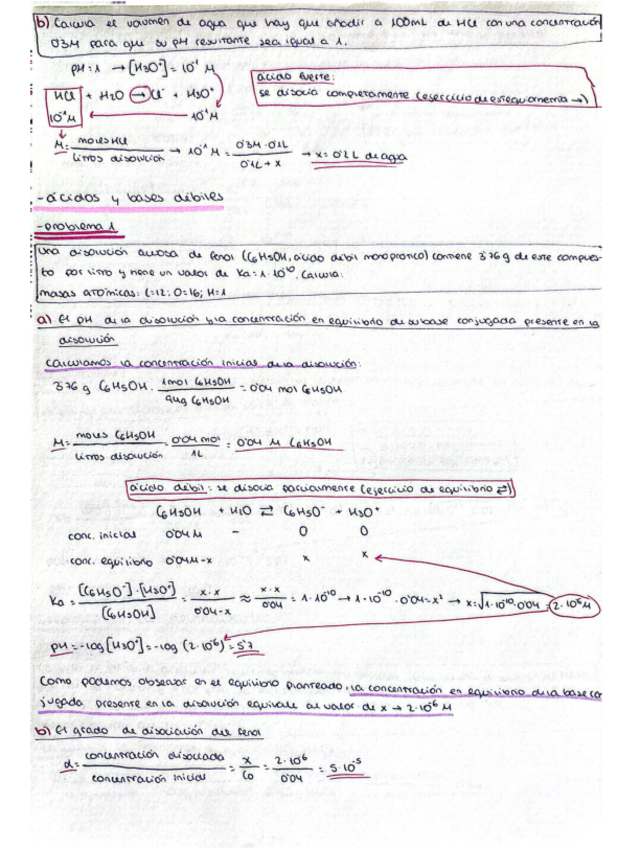 b) Calcula el volumen de agua que hay que añadir a 100mL de HCl con una concentración
0'3M para que su pH resultante sea igual a 1.
pH=1 → [H3O+]=10^-1 M
ácido fuerte:
se disocia completamente (ejercicio de estequiometría →)
HCl + H2O → Cl^- + H3O+
10^-1M ← 10^-1M
M = moles HCl / litros disolución → 10^-1 M = 0'3M · 0'1L / 0'1L + x → x=0'2 L de agua
-ácidos y bases débiles
-problema 1
Una disolución acuosa de fenol (C6H5OH, ácido débil monoprótico) contiene 3'76g de este compues-
to por litro y tiene un valor de Ka=1·10^-10. Calcula:
masas atómicas: C=12; O=16; H=1
a) El pH de la disolución y la concentración en equilibrio de su base conjugada presente en la
disolución
Calculamos la concentración inicial de la disolución:
3'76 g C6H5OH · 1mol C6H5OH / 94g C6H5OH = 0'04 mol C6H5OH
M = moles C6H5OH / litros disolución = 0'04 mol / 1L = 0'04 M C6H5OH
ácido débil: se disocia parcialmente (ejercicio de equilibrio ⇄)
C6H5OH + H2O ⇄ C6H5O^- + H3O+
conc. inicial 0'04M - 0 0
conc. equilibrio 0'04M-x x x
Ka = [C6H5O^-]·[H3O+] / [C6H5OH] = x·x / 0'04-x ≈ x·x / 0'04 = 1·10^-10 → 1·10^-10·0'04=x² → x=√1·10^-10·0'04 = 2·10^-6M
pH=-log[H3O+]=-log(2·10^-6)=5'7
Como podemos observar en el equilibrio planteado, la concentración en equilibrio de la base con
jugada presente en la disolución equivale al valor de x → 2·10^-6 M
b) El grado de disociación del fenol
α = concentración disociada / concentración inicial = x / C0 = 2·10^-6 / 0'04 = 5·10^-5